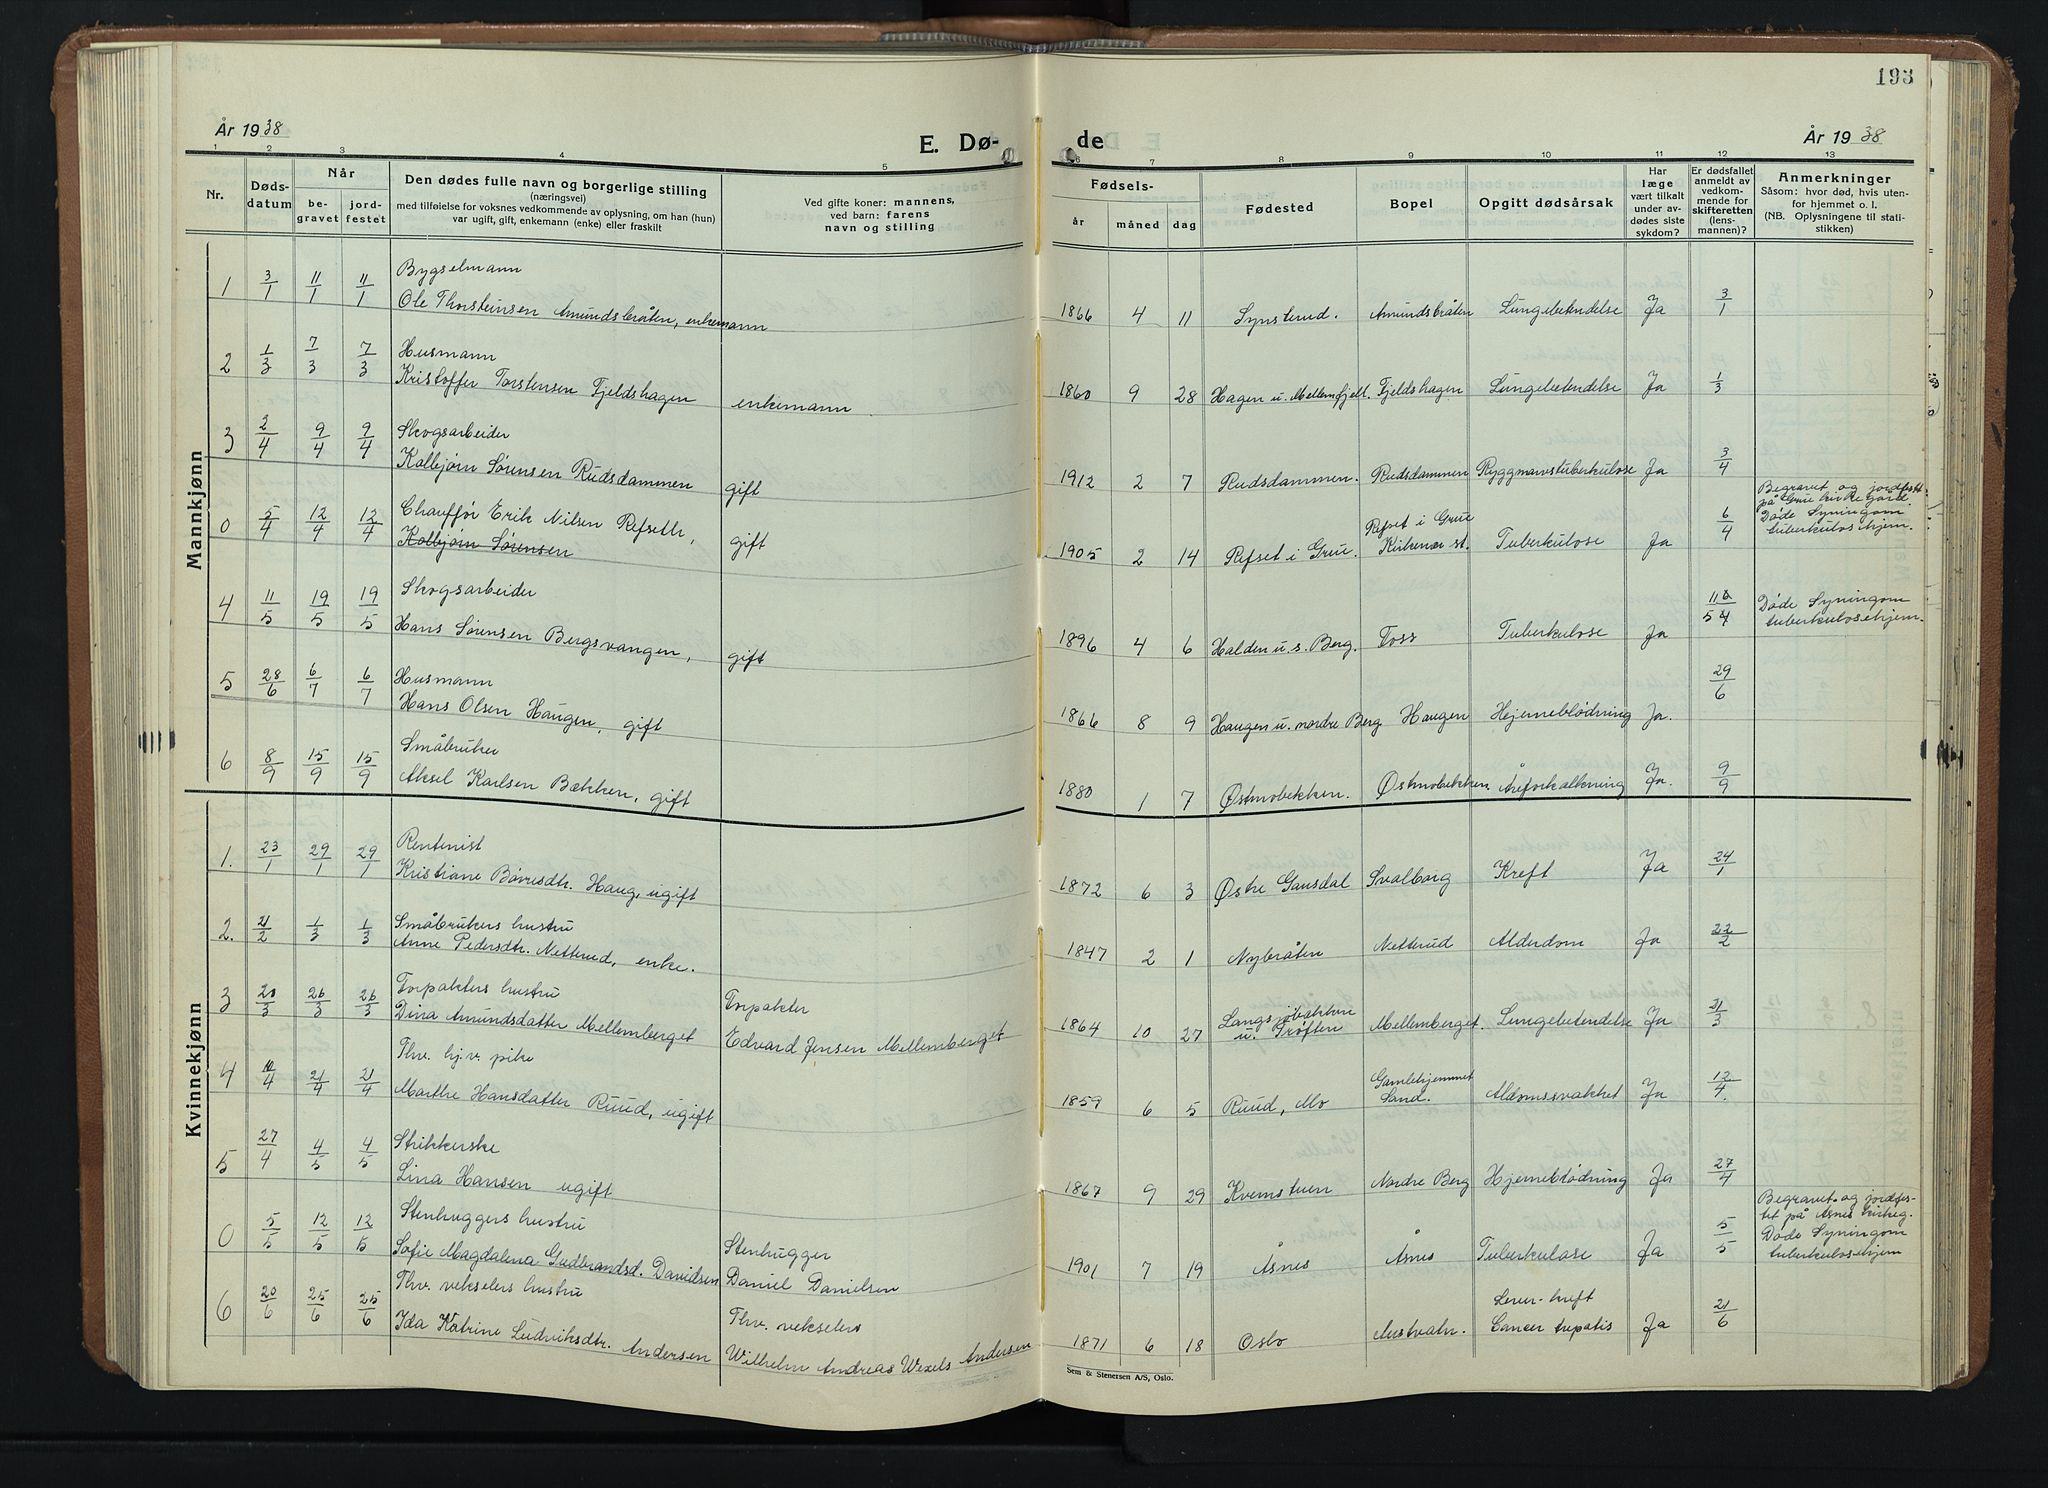 193
År 1938
E. Dø-
de
År 1938
1 2 3 4 5 6 7 8 9 10 11 12 13
Nr.
Døds-
datum
Når
be-
gravet
jord-
festet
Den dødes fulle navn og borgerlige stilling
(næringsvei)
med tilføielse for voksnes vedkommende av oplysning, om han (hun)
var ugift, gift, enkemann (enke) eller fraskilt
Ved gifte koner: mannens,
ved barn: farens
navn og stilling
Fødsels-
år måned dag
Fødested
Bopel
Opgitt dødsårsak
Har
læge
vært tilkalt
under av-
dødes siste
sykdom?
Er dødsfallet
anmeldt av
vedkom-
mende for
skifteretten
(lens-
mannen)?
Anmerkninger
Såsom: hvor død, hvis uten-
for hjemmet o. l.
(NB. Oplysningene til stati-
stikken)
Mannkjønn
1 3/1 11/1 11/1 Bygselmann
Ole Thorsteinsen Amundsbråten, enkemann 1866 4 11 Synsterud. Amundsbråten Lungebetendelse Ja 3/1
2 1/3 7/3 7/3 Husmann
Kristoffer Torstensen Fjeldshagen enkemann 1860 9 28 Hagen u. Mellemfjell. Fjeldshagen Lungebetendelse Ja 1/3
3 2/4 9/4 9/4 Skogsarbeider
Kolbjørn Sørensen Rudsdammen gift 1912 2 7 Rudsdammen. Rudsdammen Ryggmarvstuberkulose Ja 3/4
0 5/4 12/4 12/4 Chauffør Erik Nilsen Refseth, gift
Kolbjørn Sørensen 1905 2 14 Refset i Grue Refset i Grue
Kirkenær st. Tuberkulose Ja 6/4 Begravet og jordfest
på Grue kirkegård
Døde Syningom
tuberkulosehjem.
4 11/5 19/5 19/5 Skogsarbeider
Hans Sørensen Bergsvangen, gift 1896 4 6 Halden u. s. Berg. Foss Tuberkulose Ja 11/5 Døde Syningom
tuberkulosehjem.
5 28/6 6/7 6/7 Husmann
Hans Olsen Haugen, gift 1866 8 9 Haugen u. nordre Berg Haugen Hejerneblödning Ja. 29/6
6 8/9 15/9 15/9 Småbruker
Aksel Karlsen Bækken, gift 1880 1 7 Østmobekken. Østmobekken Åreforkalkning Ja. 9/9
Kvinnekjønn
1. 23/1 29/1 29/1 Rentenist
Kristiane Bøvresdtr. Haug, ugift 1872 6 3 Østre Gausdal Svalborg Kreft Ja 24/1
2. 21/2 1/3 1/3 Småbrukers hustru
Anne Pedersdtr. Netterud, enke. 1847 2 1 Nybråten Netterud Alderdom Ja 22/2
3 20/3 26/3 26/3 Forpakters hustru
Dina Amundsdatter Mellemberget Forpakter
Edvard Jensen Mellemberget 1864 10 27 Langsjøbakken
u. Trøften Mellemberget. Lungebetendelse Ja 21/3
4 10/4 21/4 21/4 Fhv. hj.v. pike
Marthe Hansdatter Ruud, ugift 1859 6 5 Ruud, Mo Gamlehjemmet
Sand. Aldomssvakhet Ja 12/4.
5 27/4 4/5 4/5 Strikkerske
Lina Hansen ugift 1867 9 29 Kvemstuen Nordre Berg Hjerneblödning Ja 27/4
0 5/5 12/5 12/5 Stenhuggers hustru
Sofie Magdalena Gudbrandsd. Davidsen Stenhugger
Daniel Danielsen 1901 7 19 Åsnes Åsnes Tuberkulose Ja 5/5 Begravet og jordfes-
tet på Åsnes kirkeg.
Døde Syningom
tuberkulosehjem
6 20/6 25/6 25/6 Fhv. vekselers hustru
Ida Katrine Ludviksdtr. Andersen Fhv. vekselers
Wilhelm Andreas Wexels Andersen 1871 6 18 Oslo Austvatn. Lever-kreft
Cancer hepatis Ja 21/6
Sem & Stenersen A/S, Oslo.